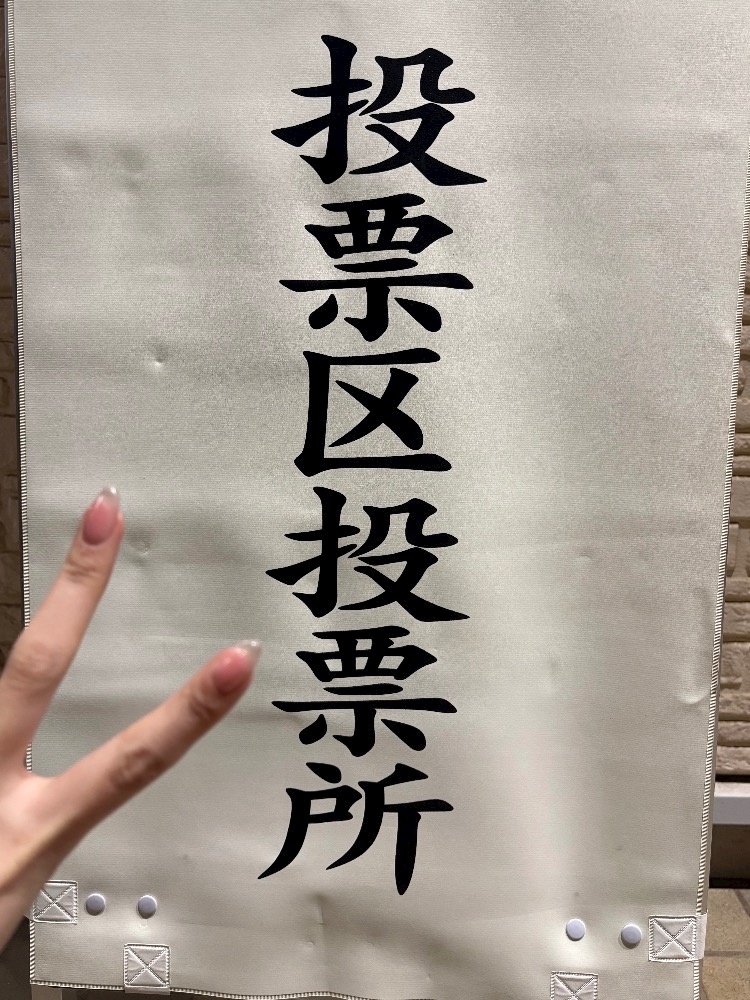 投票区投票所